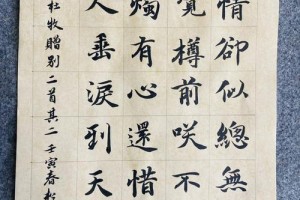 情卻似總無
覺樽前咲不
燭有心還惜
人垂淚到天
杜牧贈別二首其二壬寅春